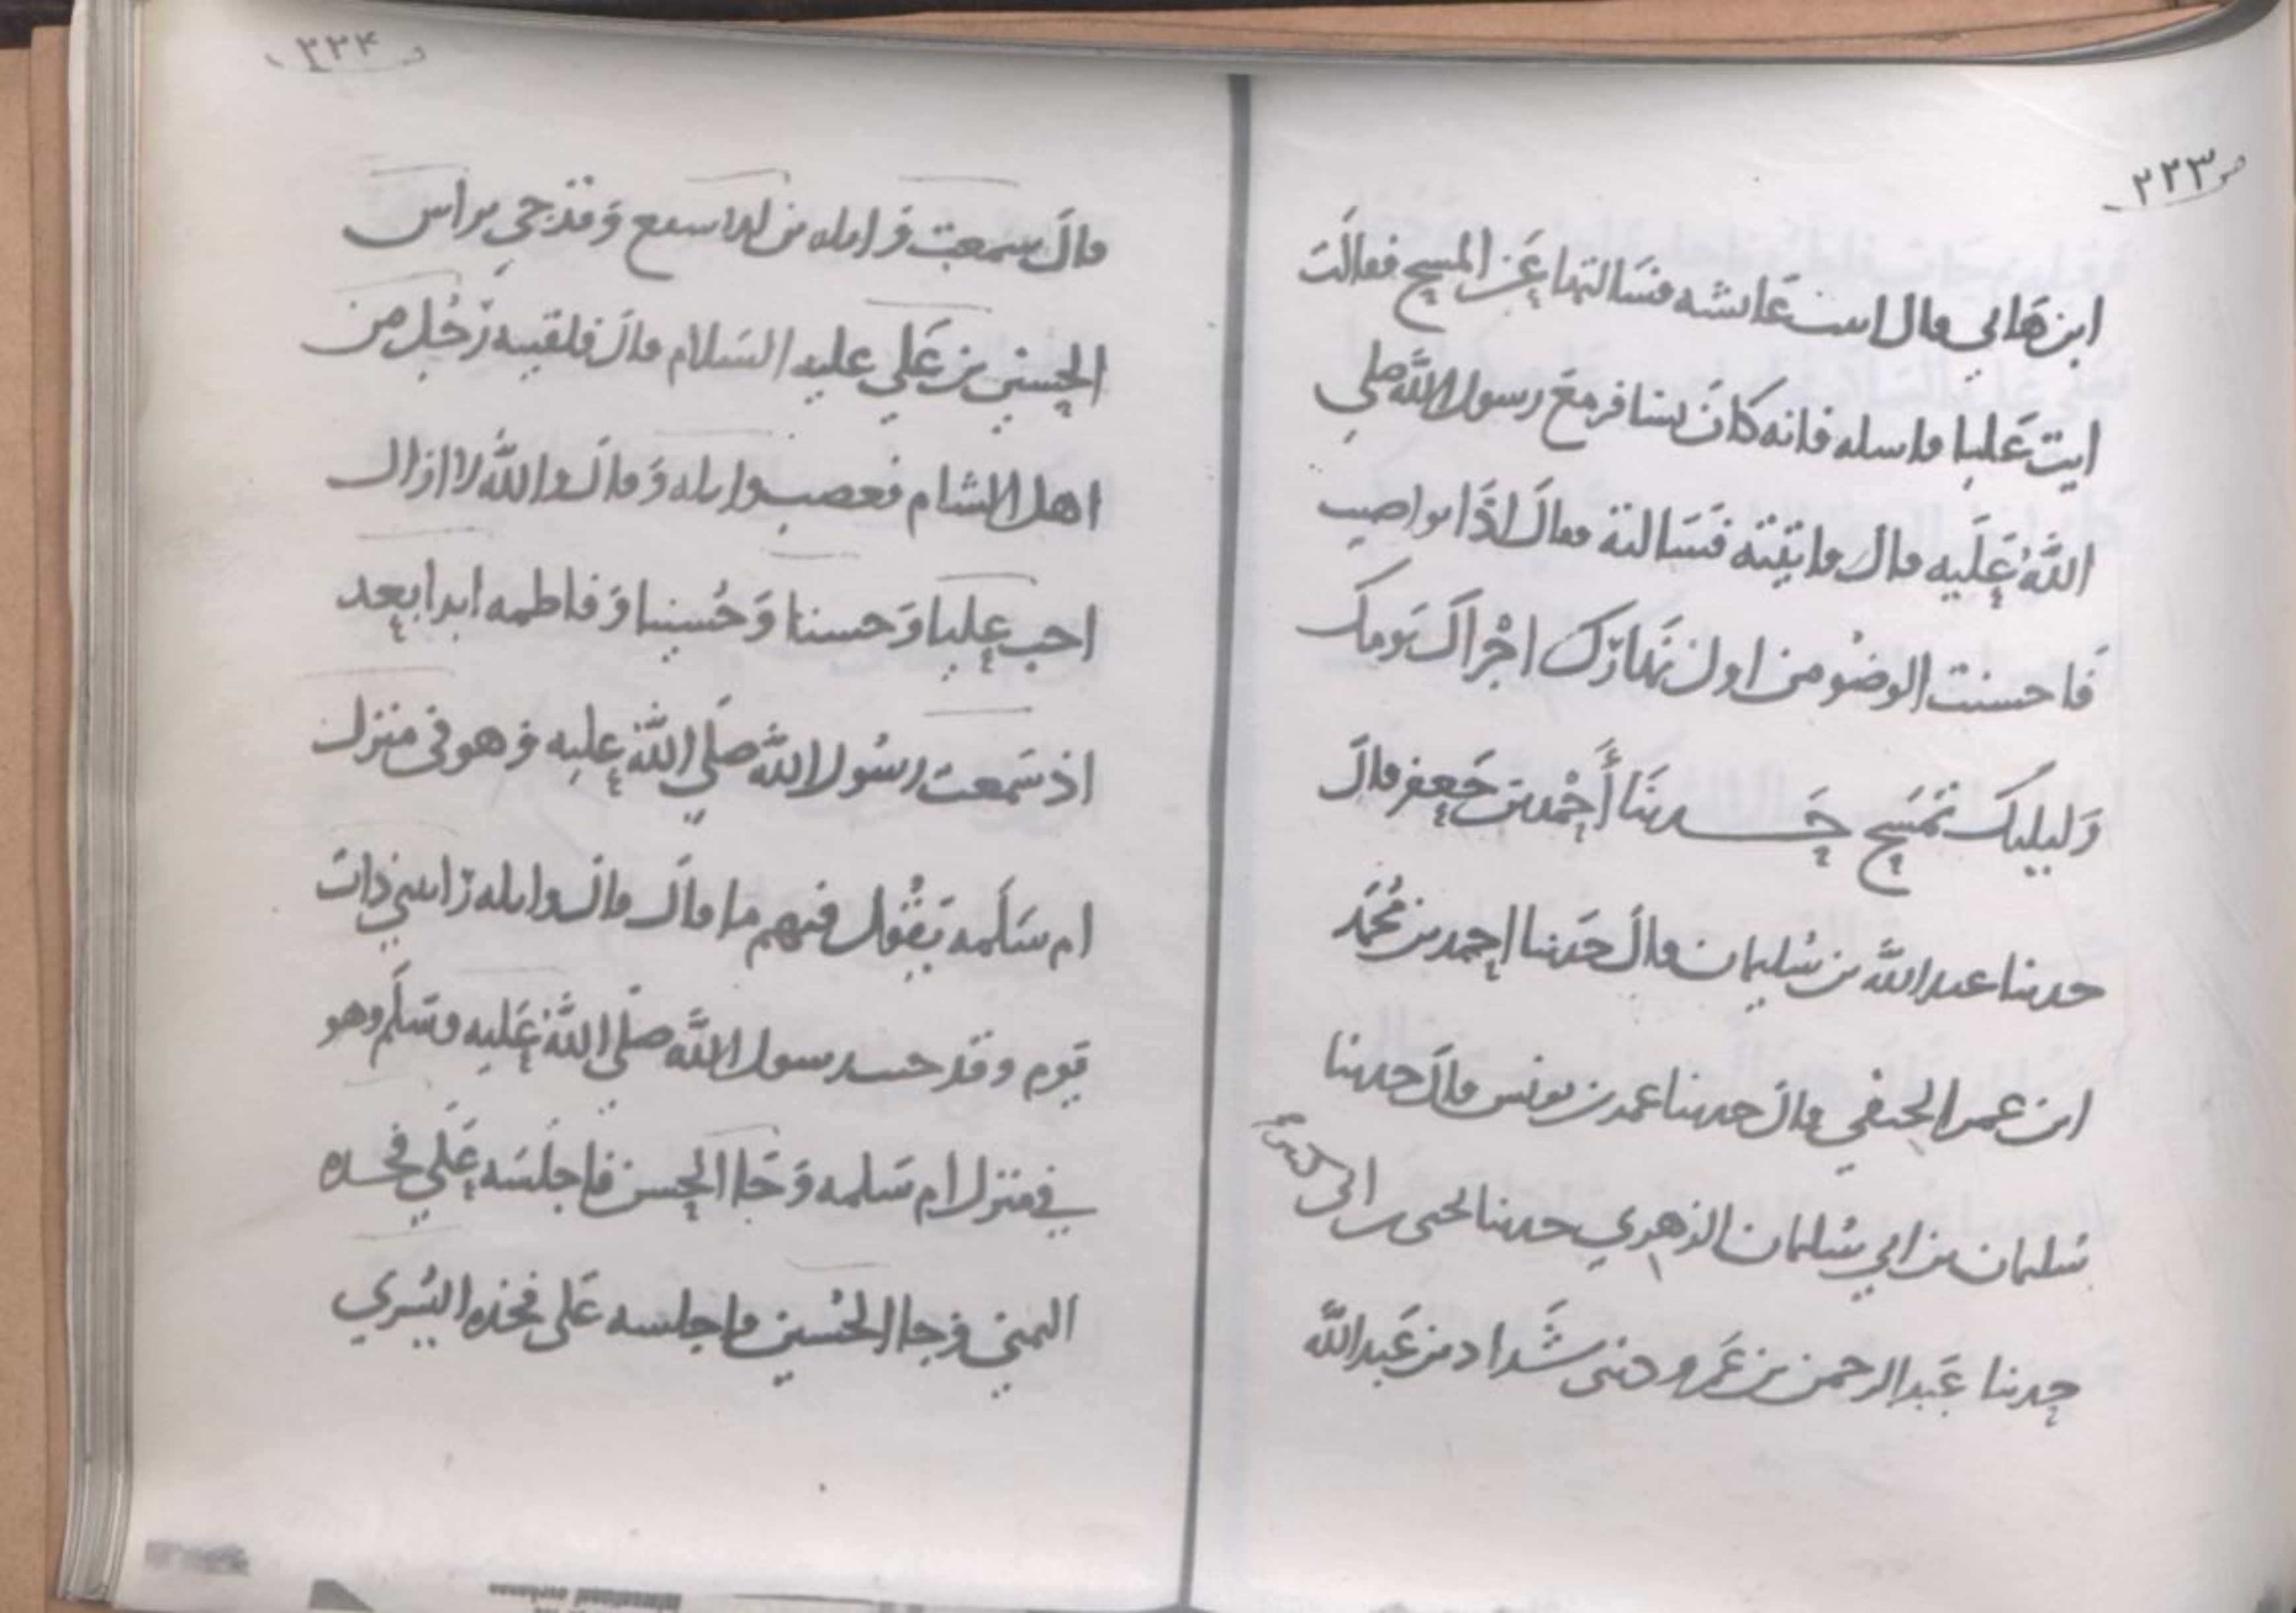 ص ٢٢٣
ابن هاني قال اتيت عَايشه فسَالتها عَن المسح فقالَت
ايت عَليا فاسله فانه كانَ يسَافر معَ رسول اللَّه صلي
اللَّهُ عَلَيه قال فاتيته فَسَالته فقالَ اذَا
فَاحسنت الوضُو من اول نَهارَك اجْزاك يَومك
وَليلتك تمسَح حَدثنَا أَحْمد بن جَعفر قالَ
حدثنا عبد اللَّه بن سُليمان قالَ حَدثنا احمد بن مُحمَّد
ابن عمر الحنفي قال حدثنا عمر بن يونس قالَ حدثنا
سُليمان بن ابي سُليمان الزهري حدثنا يحيى بن ابي كثير
حدثنا عَبد الرحمن بن عَمرو حدثنى شَداد بن عَبد اللَّه
ص ٢٢٤
قالَ سمعت وَاثله بن الاسقع وَقد جي براس
الحسين بن عَلي عليه السَلام قالَ فلقيه رَجُل من
اهل الشام فغضب واثله وَقالَ واللَّه لا ازال
احب عليا وَحسنا وَحُسينا وَفاطمه ابدا بعد
اذ سَمعت رسُول اللَّه صَلي اللَّه عليه وَهو فى منزل
ام سَلَمه يَقُول فيهم ما قالَ قالَ واثله رَايتني ذات
يَوم وقد جيت رسول اللَّه صلَي اللَّه عَليه وسَلَّم وهو
في منزل ام سَلمه وَجَا الحسن فاجلَسَه عَلَي فخذه
اليمني وَجا الحُسين فاجلسه عَلى فخذه اليُسري